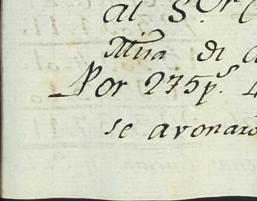 al S.or
Mría di
Por 275 p.s
se avonaro